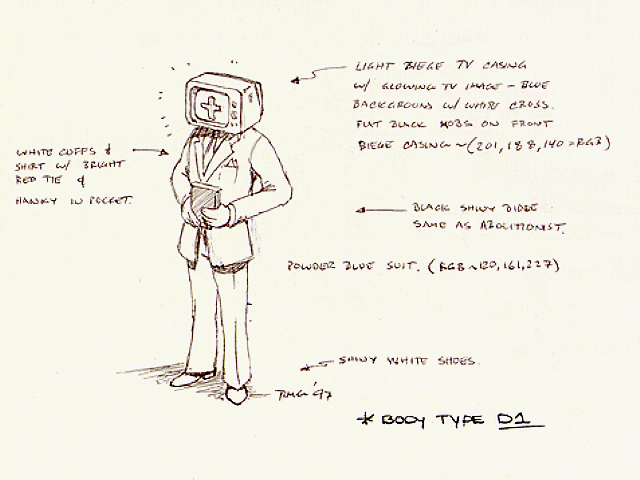 LIGHT BIEGE TV CASING
W/ GLOWING TV IMAGE - BLUE
BACKGROUND W/ WHITE CROSS.
FLAT BLACK KNOBS ON FRONT
BIEGE CASING ~(201,188,140 = RGB)
WHITE CUFFS &
SHIRT W/ BRIGHT
RED TIE &
HANKY IN POCKET.
BLACK SHINY BIBLE
SAME AS ABOLITIONIST.
POWDER BLUE SUIT. (RGB ~ 120,161,227)
SHINY WHITE SHOES.
'97
* BODY TYPE D1